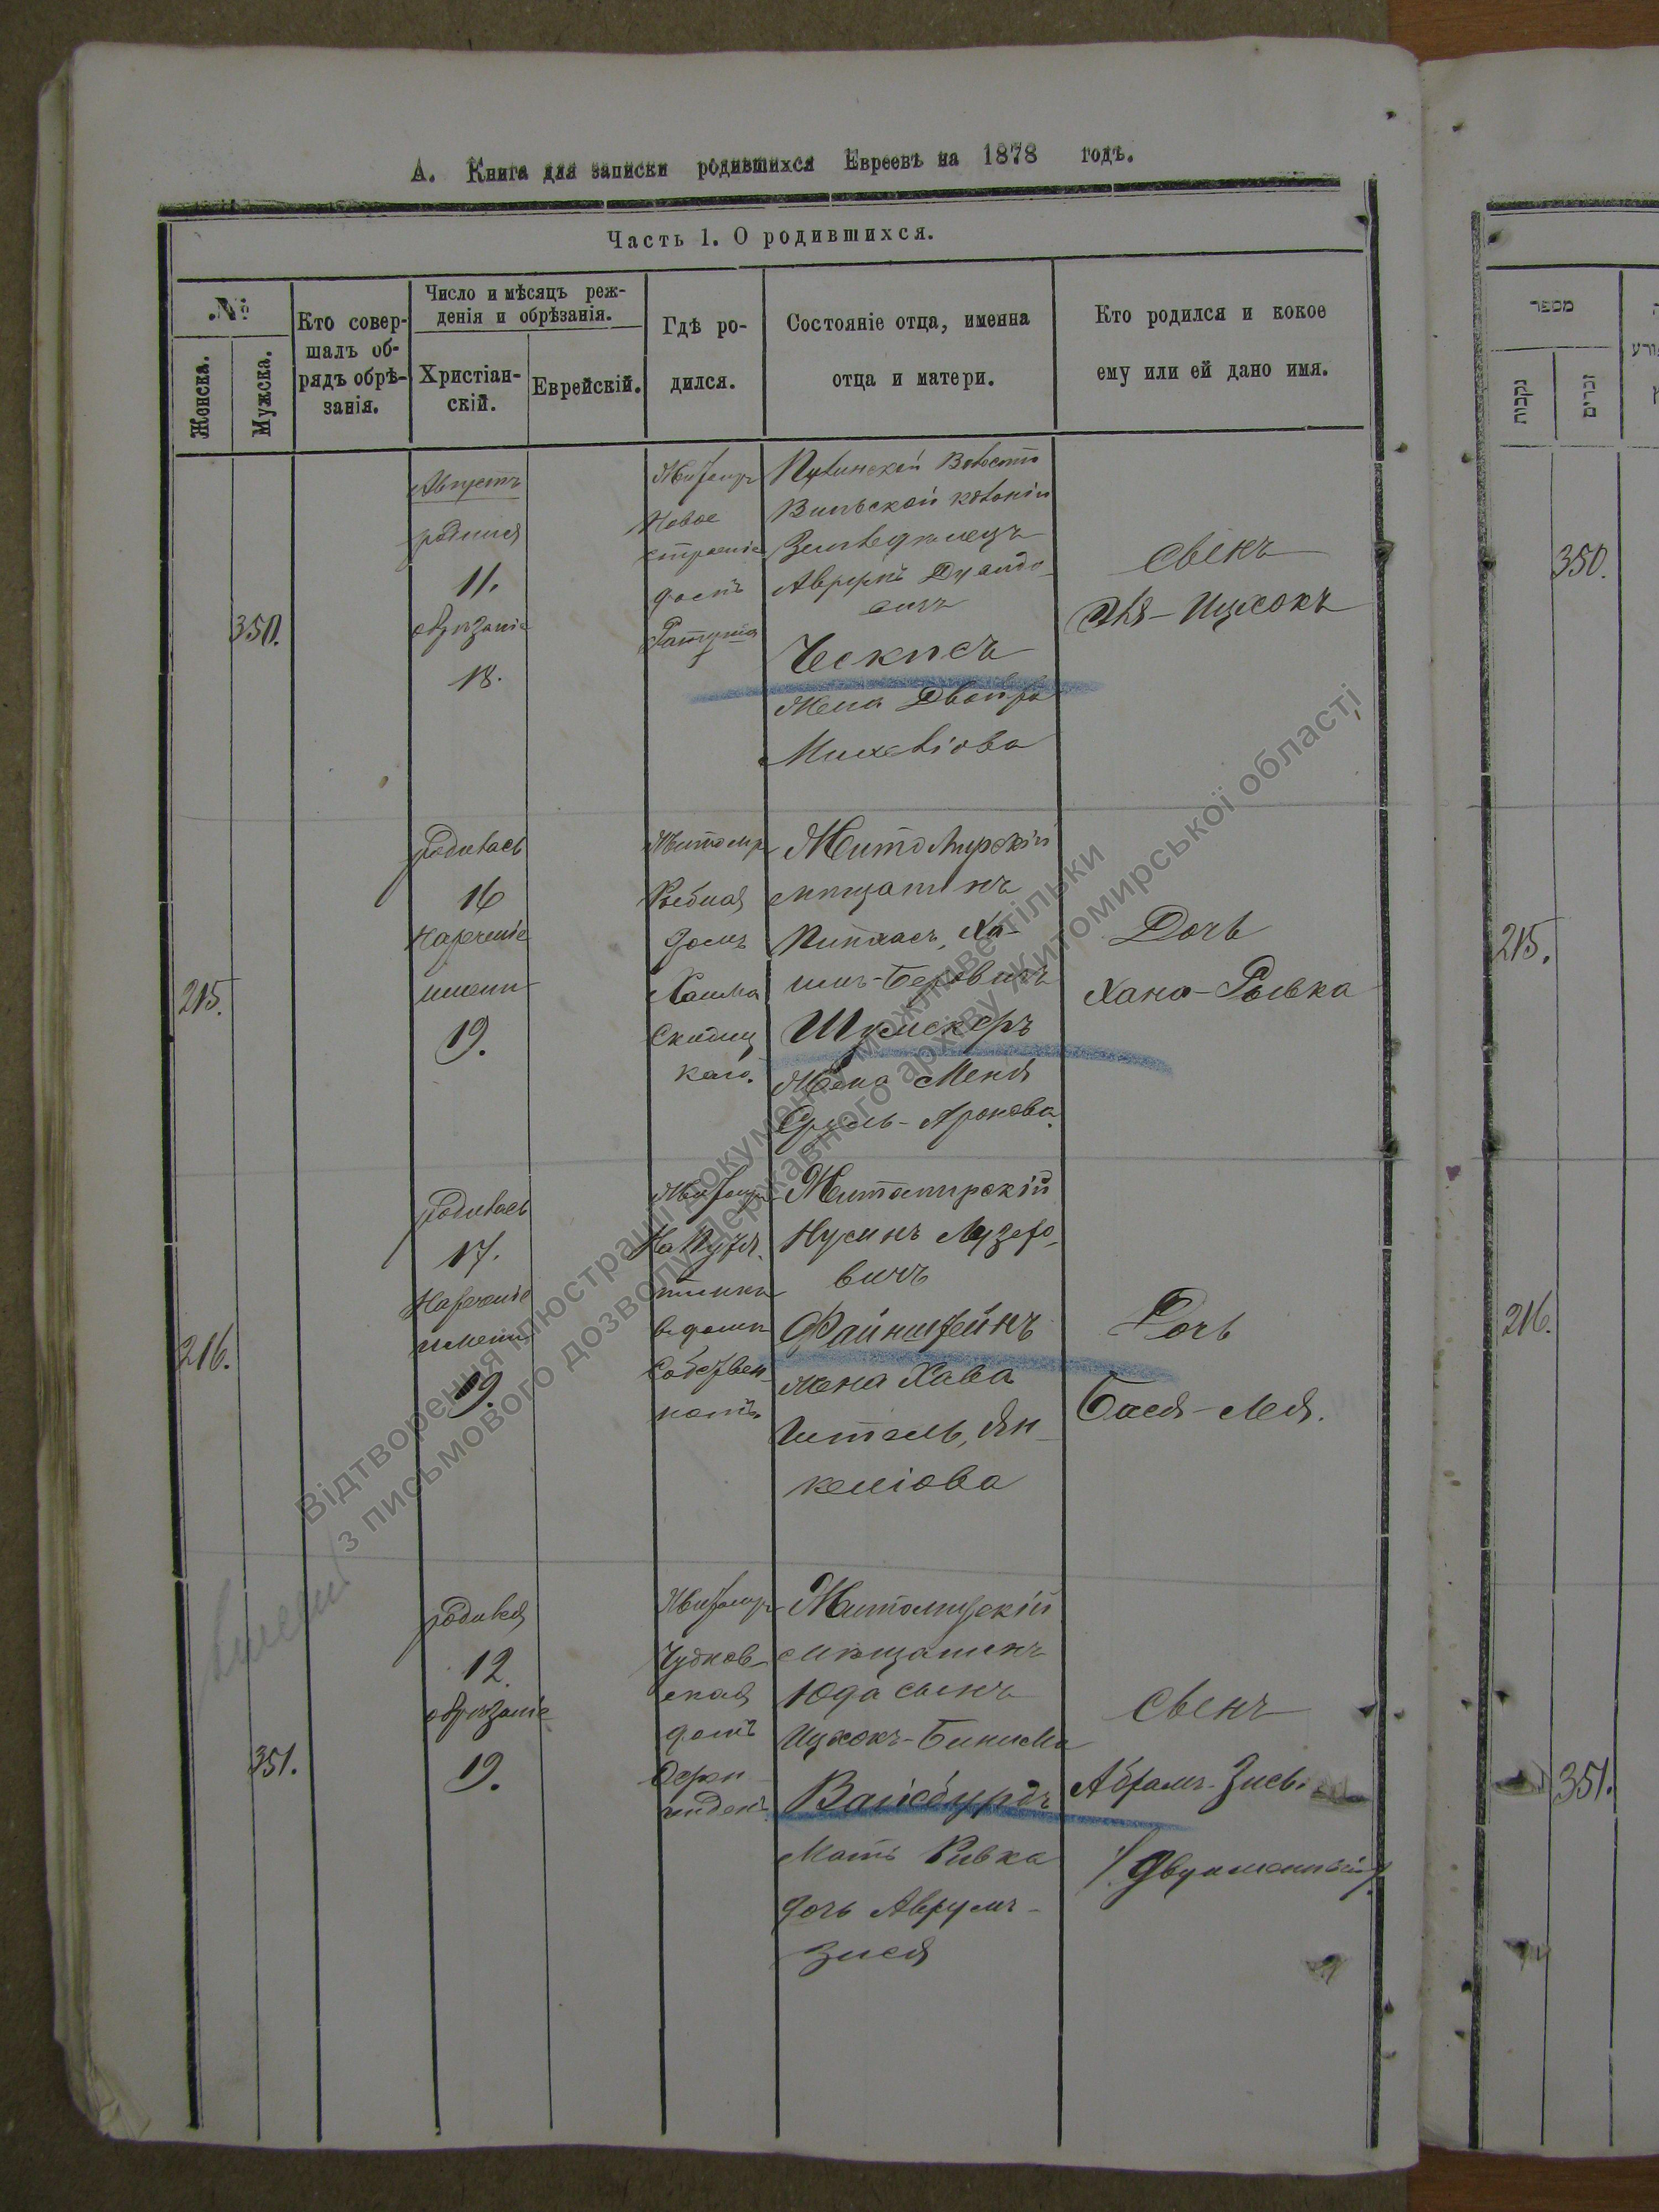 А. Книга для записки родившихся Евреевъ на 1878 годъ.
Часть 1. О родившихся.
№
Женска.
Мужска.
Кто совер-
шалъ об-
рядъ обрѣ-
занія.
Число и мѣсяцъ реж-
денія и обрѣзанія.
Христіан-
скій.
Еврейскій.
Гдѣ ро-
дился.
Состояніе отца, именна
отца и матери.
Кто родился и кокое
ему или ей дано имя.
350.
Августъ
родился
11.
обрѣзаніе
18.
Житомиръ
Новое
строеніе
домъ
Волости
колоніи
Ческисъ
Жена Двойра
Михеліова
сынъ
Эля-Ицхокъ
215.
родилась
16
Нареченіе
имени
19.
Житомиръ
Рыбная
домъ
Хаима
Житомирскій
мѣщанинъ
Пинхасъ, Ха-
имъ-Беровичъ
Шумскеръ
Жена Меня
Сруль-Аронова.
Дочь
Хана-Рывка
216.
родилась
17.
Нареченіе
имени
19.
Житомиръ
в домѣ
Собствен-
номъ.
Житомирскій
Нусинъ Лузеро-
вичъ
Файнштейнъ
жена Хава
Итель, Ян-
келіова
Дочь
Бася-Лея.
351.
родился
12.
обрѣзаніе
19.
Житомиръ
Чудков-
ская
домъ
Житомирскій
мѣщанинъ
Юда сынъ
Ицхокъ-Бинима
Вайсбурдъ
Мать Ривка
дочь Аврумъ-
Зися
сынъ
Абрамъ-Зись
/двуименный/
מספר
נקבות
זכרים
350.
215.
216.
351.
Відтворення ілюстрації документу можливе тільки
з письмового дозволу Державного архіву Житомирської області